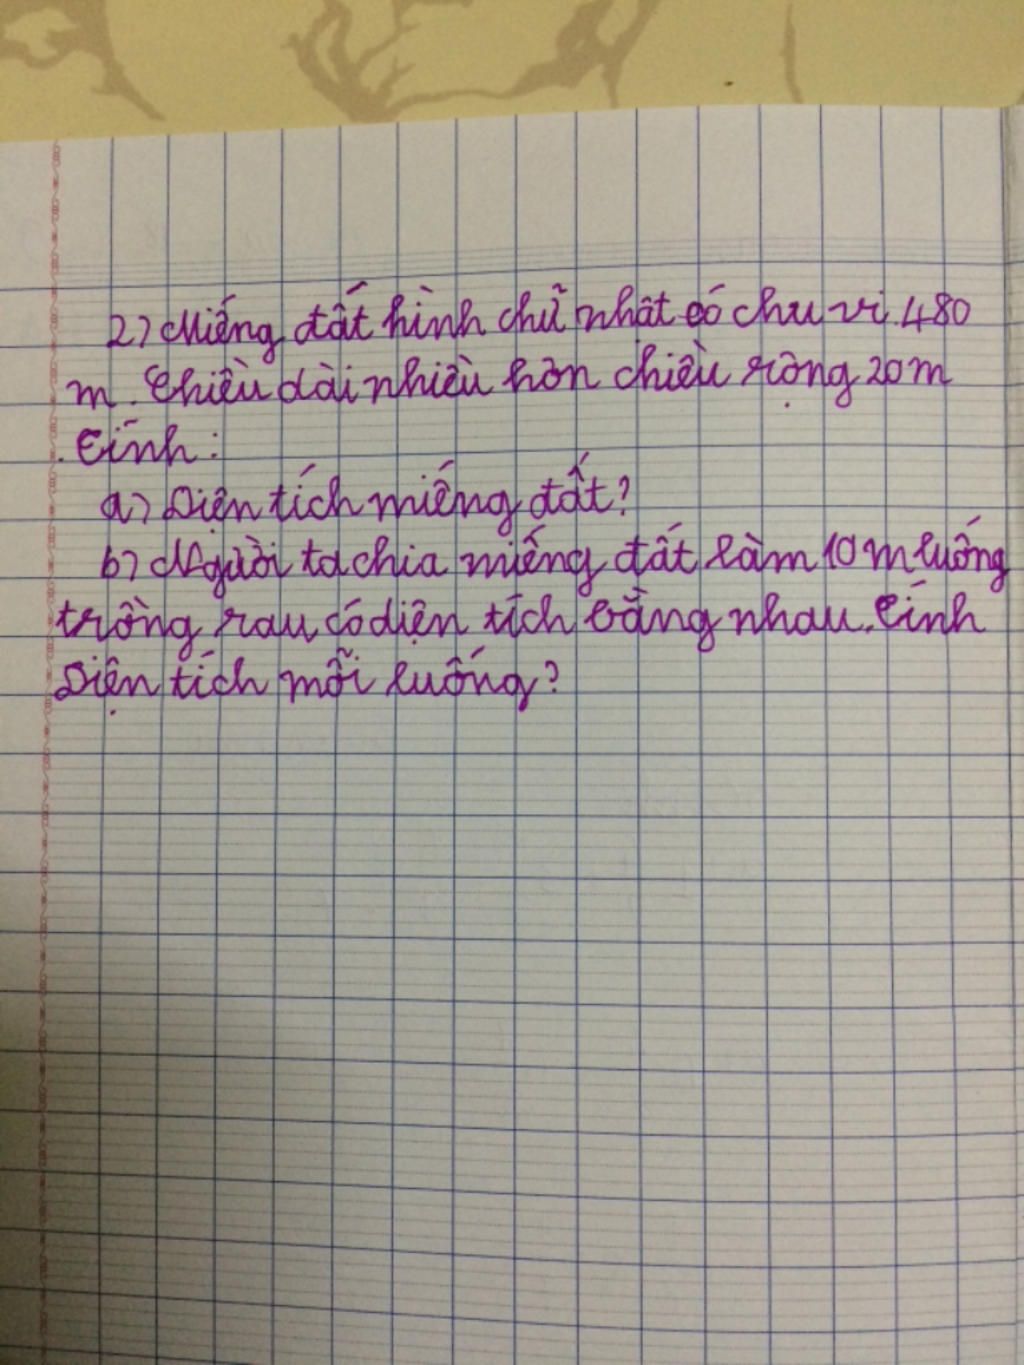 2) Miếng đất hình chữ nhật có chu vi 480
m. Chiều dài nhiều hơn chiều rộng 20m
. Tính:
a) Diện tích miếng đất?
b) Người ta chia miếng đất làm 10 m luống
trồng rau có diện tích bằng nhau. Tính
Diện tích mỗi luống?